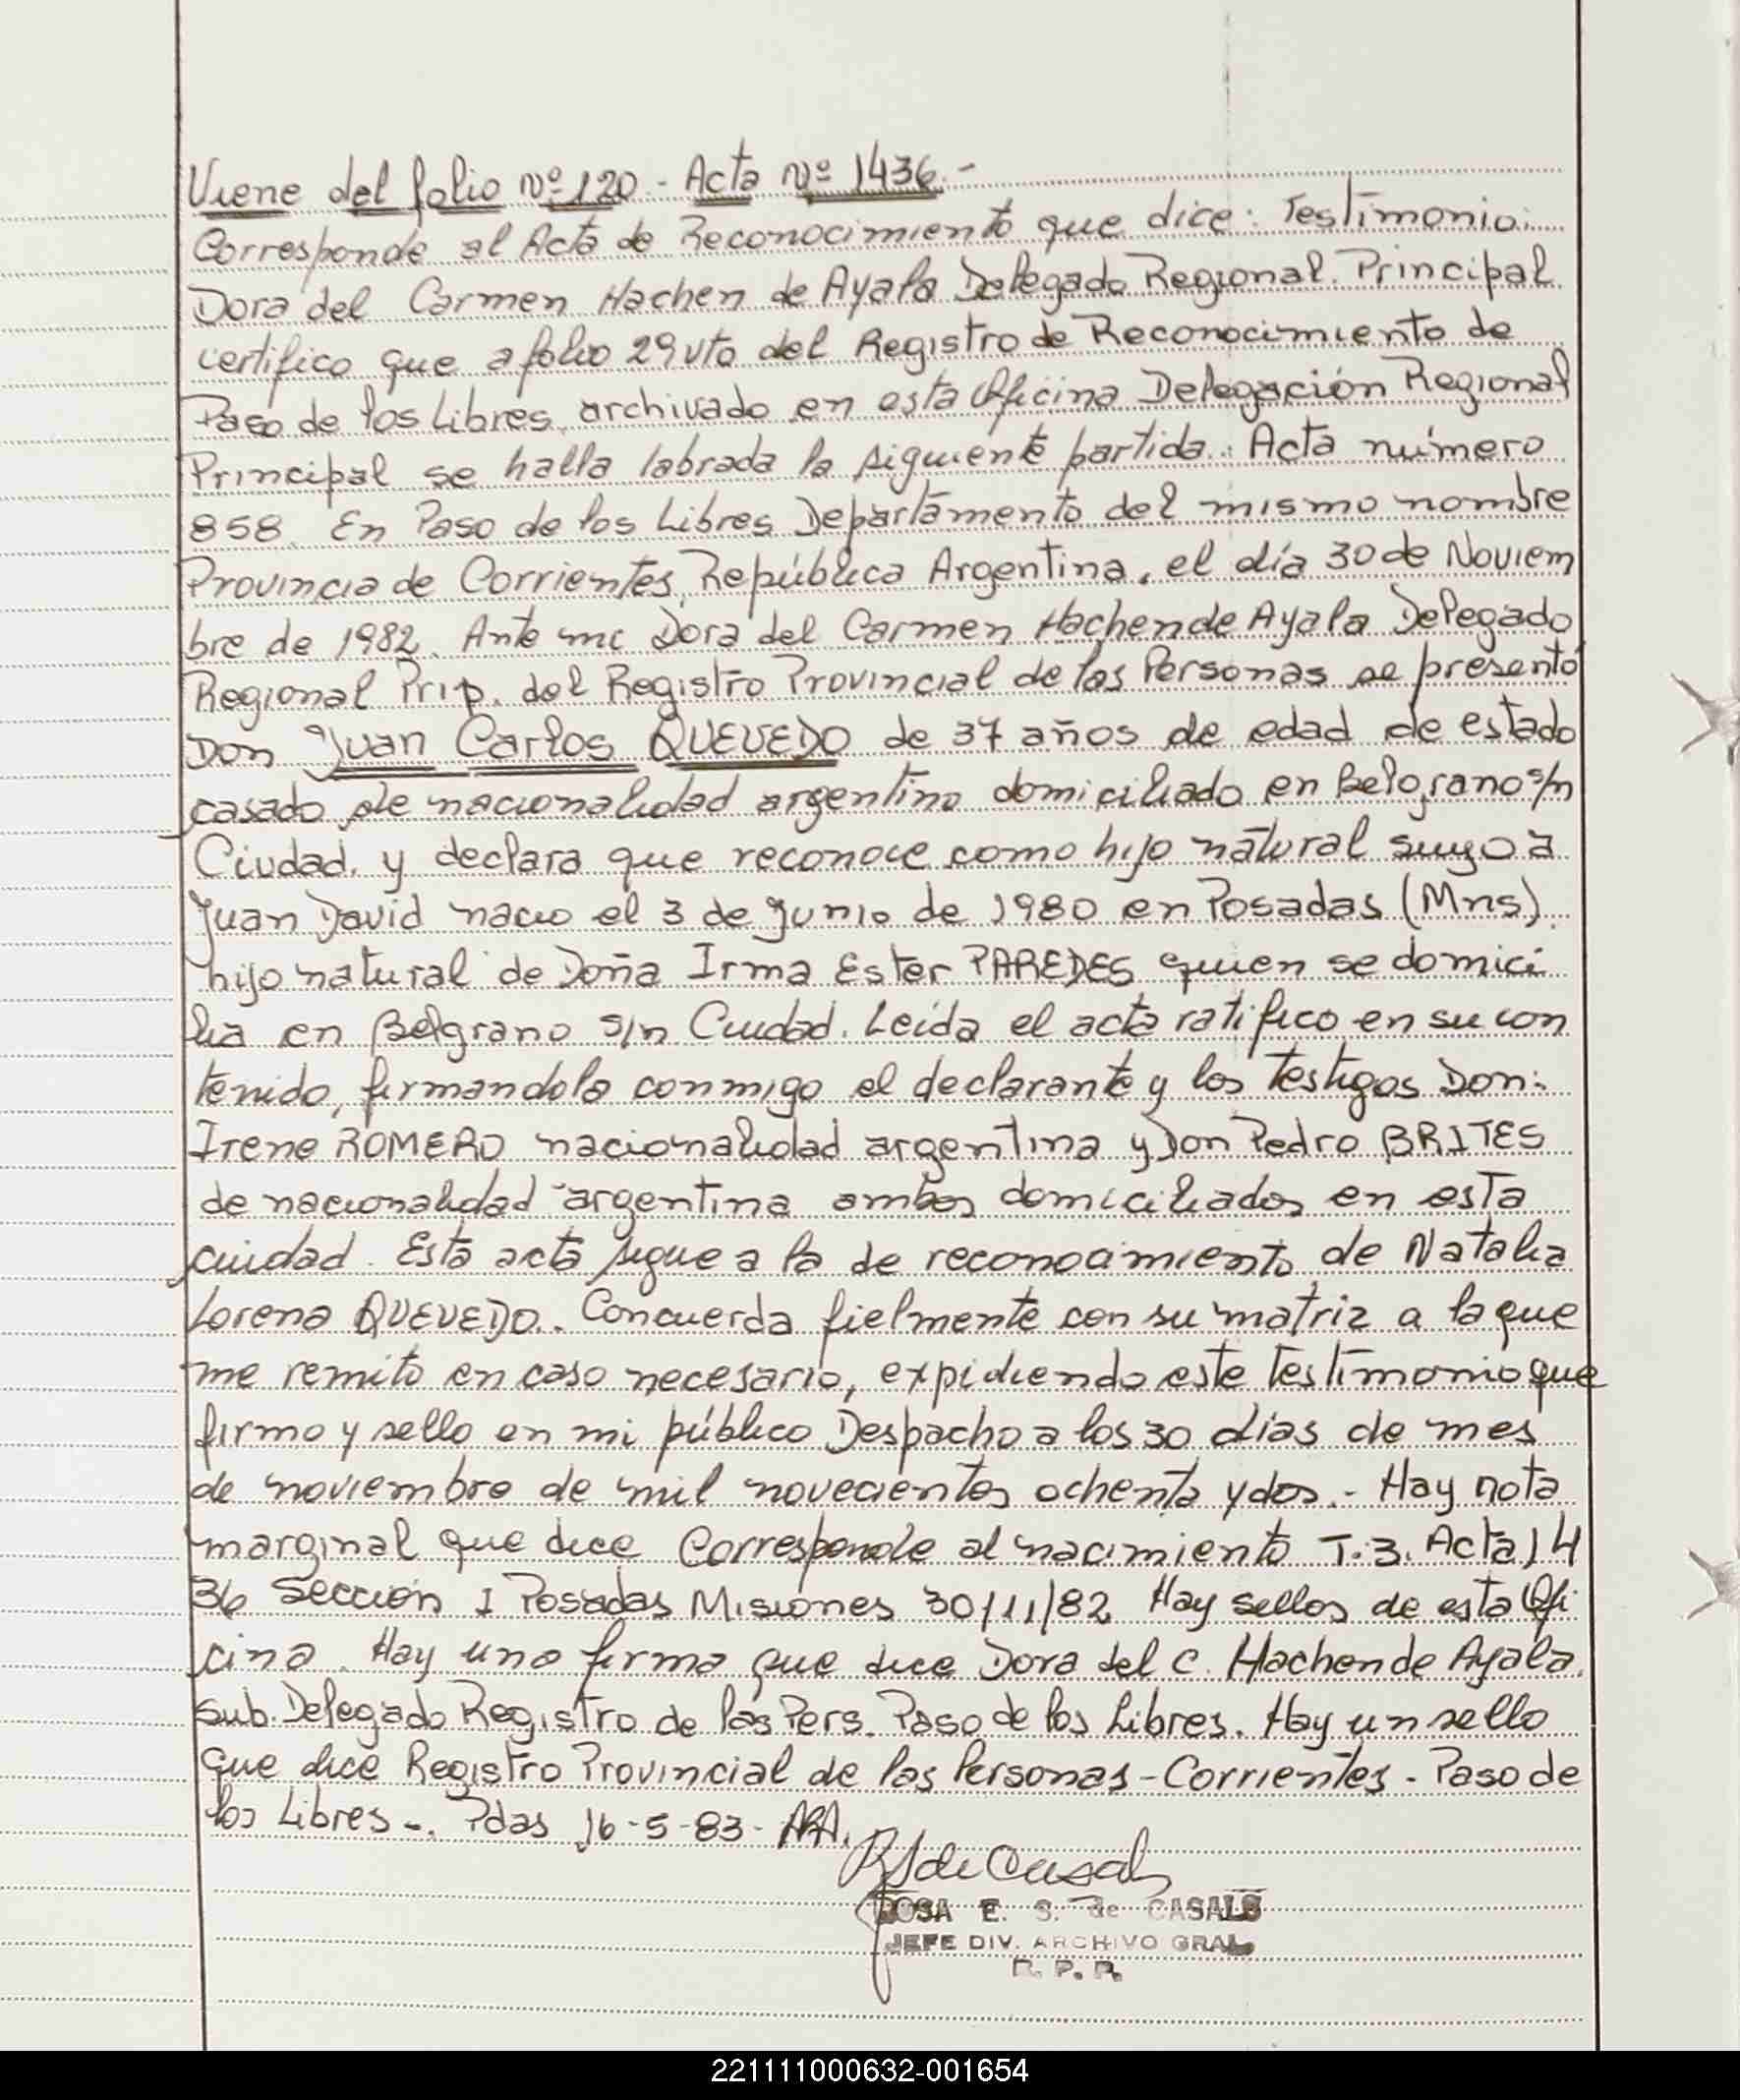 Viene del folio Nº 120.- Acta Nº 1436.-
Corresponde al Acta de Reconocimiento que dice: Testimonio:
Dora del Carmen Hachen de Ayala Delegado Regional Principal
certifico que a folio 29 vto del Registro de Reconocimiento de
Paso de los Libres, archivado en esta Oficina Delegación Regional
Principal se halla labrada la siguiente partida: Acta número
858. En Paso de los Libres Departamento del mismo nombre
Provincia de Corrientes, República Argentina, el día 30 de Noviem
bre de 1982. Ante mi Dora del Carmen Hachen de Ayala Delegado
Regional Prip. del Registro Provincial de las Personas se presentó
Don Juan Carlos QUEVEDO de 37 años de edad de estado
casado de nacionalidad argentino domiciliado en Belgrano s/n
Ciudad, y declara que reconoce como hijo natural suyo a
Juan David nacio el 3 de Junio de 1980 en Posadas (Mns)
hijo natural de Doña Irma Ester PAREDES quien se domici
lia en Belgrano s/n Ciudad. Leída el acta ratifico en su con
tenido, firmandola conmigo el declarante y los testigos Don:
Irene ROMERO nacionalidad argentina y Don Pedro BRITES
de nacionalidad argentina ambos domiciliados en esta
ciudad. Esta acta sigue a la de reconocimiento de Natalia
Lorena QUEVEDO.. Concuerda fielmente con su matriz a la que
me remito en caso necesario, expidiendo este testimonio que
firmo y sello en mi público Despacho a los 30 días de mes
de noviembre de mil novecientos ochenta y dos.- Hay nota
marginal que dice Corresponde al nacimiento T.3. Acta 14
36 Sección I Posadas Misiones 30/11/82 Hay sellos de esta Ofi
cina. Hay una firma que dice Dora del C. Hachen de Ayala.
Sub. Delegado Registro de las Pers. Paso de los Libres. Hay un sello
que dice Registro Provincial de las Personas - Corrientes - Paso de
los Libres -. Pdas 16-5-83- ARA.
RSdeCasals
ROSA E. S. de CASALS
JEFE DIV. ARCHIVO GRAL
R. P. P.
221111000632-001654